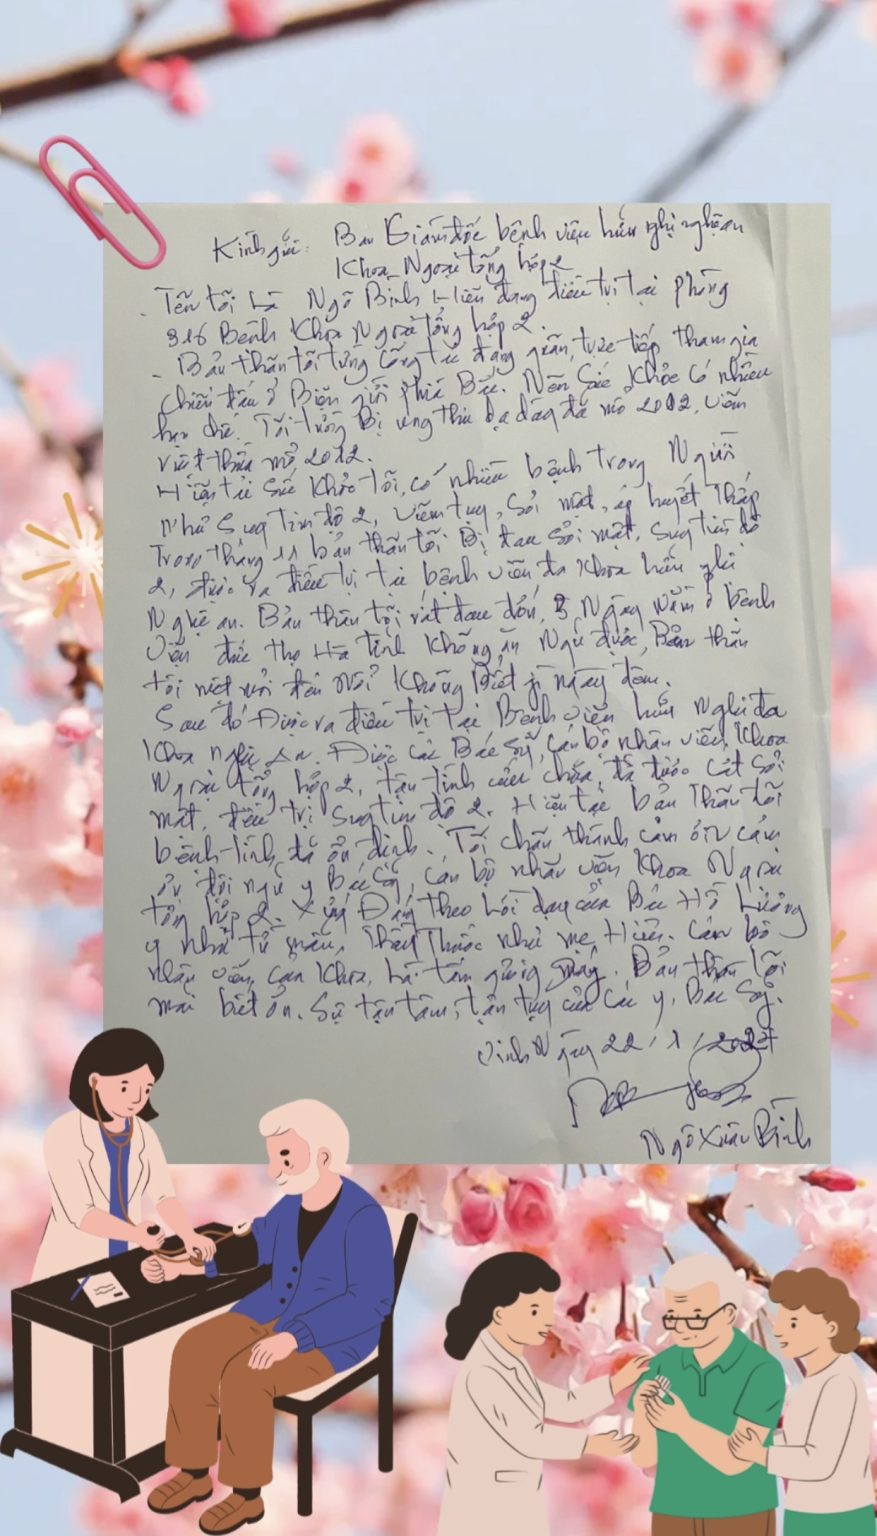 Kính gửi: Ban Giám đốc bệnh viện hữu nghị nghệ an
Khoa Ngoại tổng hợp 2
- Tên tôi là Ngô Bình Hiện đang điều trị tại phòng
316 Bệnh Khoa Ngoại tổng hợp 2.
- Bản thân tôi từng công tác trực tiếp tham gia
chiến đấu ở Biên giới phía Bắc. Nên sức khỏe có nhiều
hạn chế. Tôi từng Bị ung thư dạ dày đã mổ 2012, viêm
ruột thừa mổ 2012.
Hiện tại sức khỏe tôi, có nhiều bệnh trong Người
như suy tim độ 2, viêm tụy, sỏi mật, áp huyết thấp
Trong tháng 11 bản thân tôi Bị đau sỏi mật, suy tim độ
2, được ra điều trị tại bệnh viện đa khoa hữu nghị
Nghệ an. Bản thân tôi rất đau đớn, Ngày nằm ở bệnh
viện đức thọ Hà tĩnh không ăn Ngủ được, Bản thân
tôi mệt mỏi đến Nỗi không Biết gì ngày đêm.
Sau đó Được ra điều trị tại Bệnh viện hữu Nghị đa
khoa nghệ An. Được các Bác sỹ, cán bộ nhân viên, khoa
Ngoại tổng hợp 2, tận tình cứu chữa, đã được cắt sỏi
mật, điều trị suy tim độ 2. Hiện tại bản thân tôi
bệnh tình đã ổn định. Tôi chân thành cảm ơn cảm
ơn đội ngũ y Bác sỹ, cán bộ nhân viên khoa Ngoại
tổng hợp 2. Xứng Đáng theo lời dạy của Bác Hồ
y như từ mẫu, Thầy Thuốc như mẹ Hiền. Cán bộ
nhân viên, khoa, là tấm gương sáng. Bản thân tôi
mãi biết ơn. Sự tận tâm, tận tụy của các y, Bác sỹ.
Vinh Ngày 22/1/
Ngô Xuân Bình